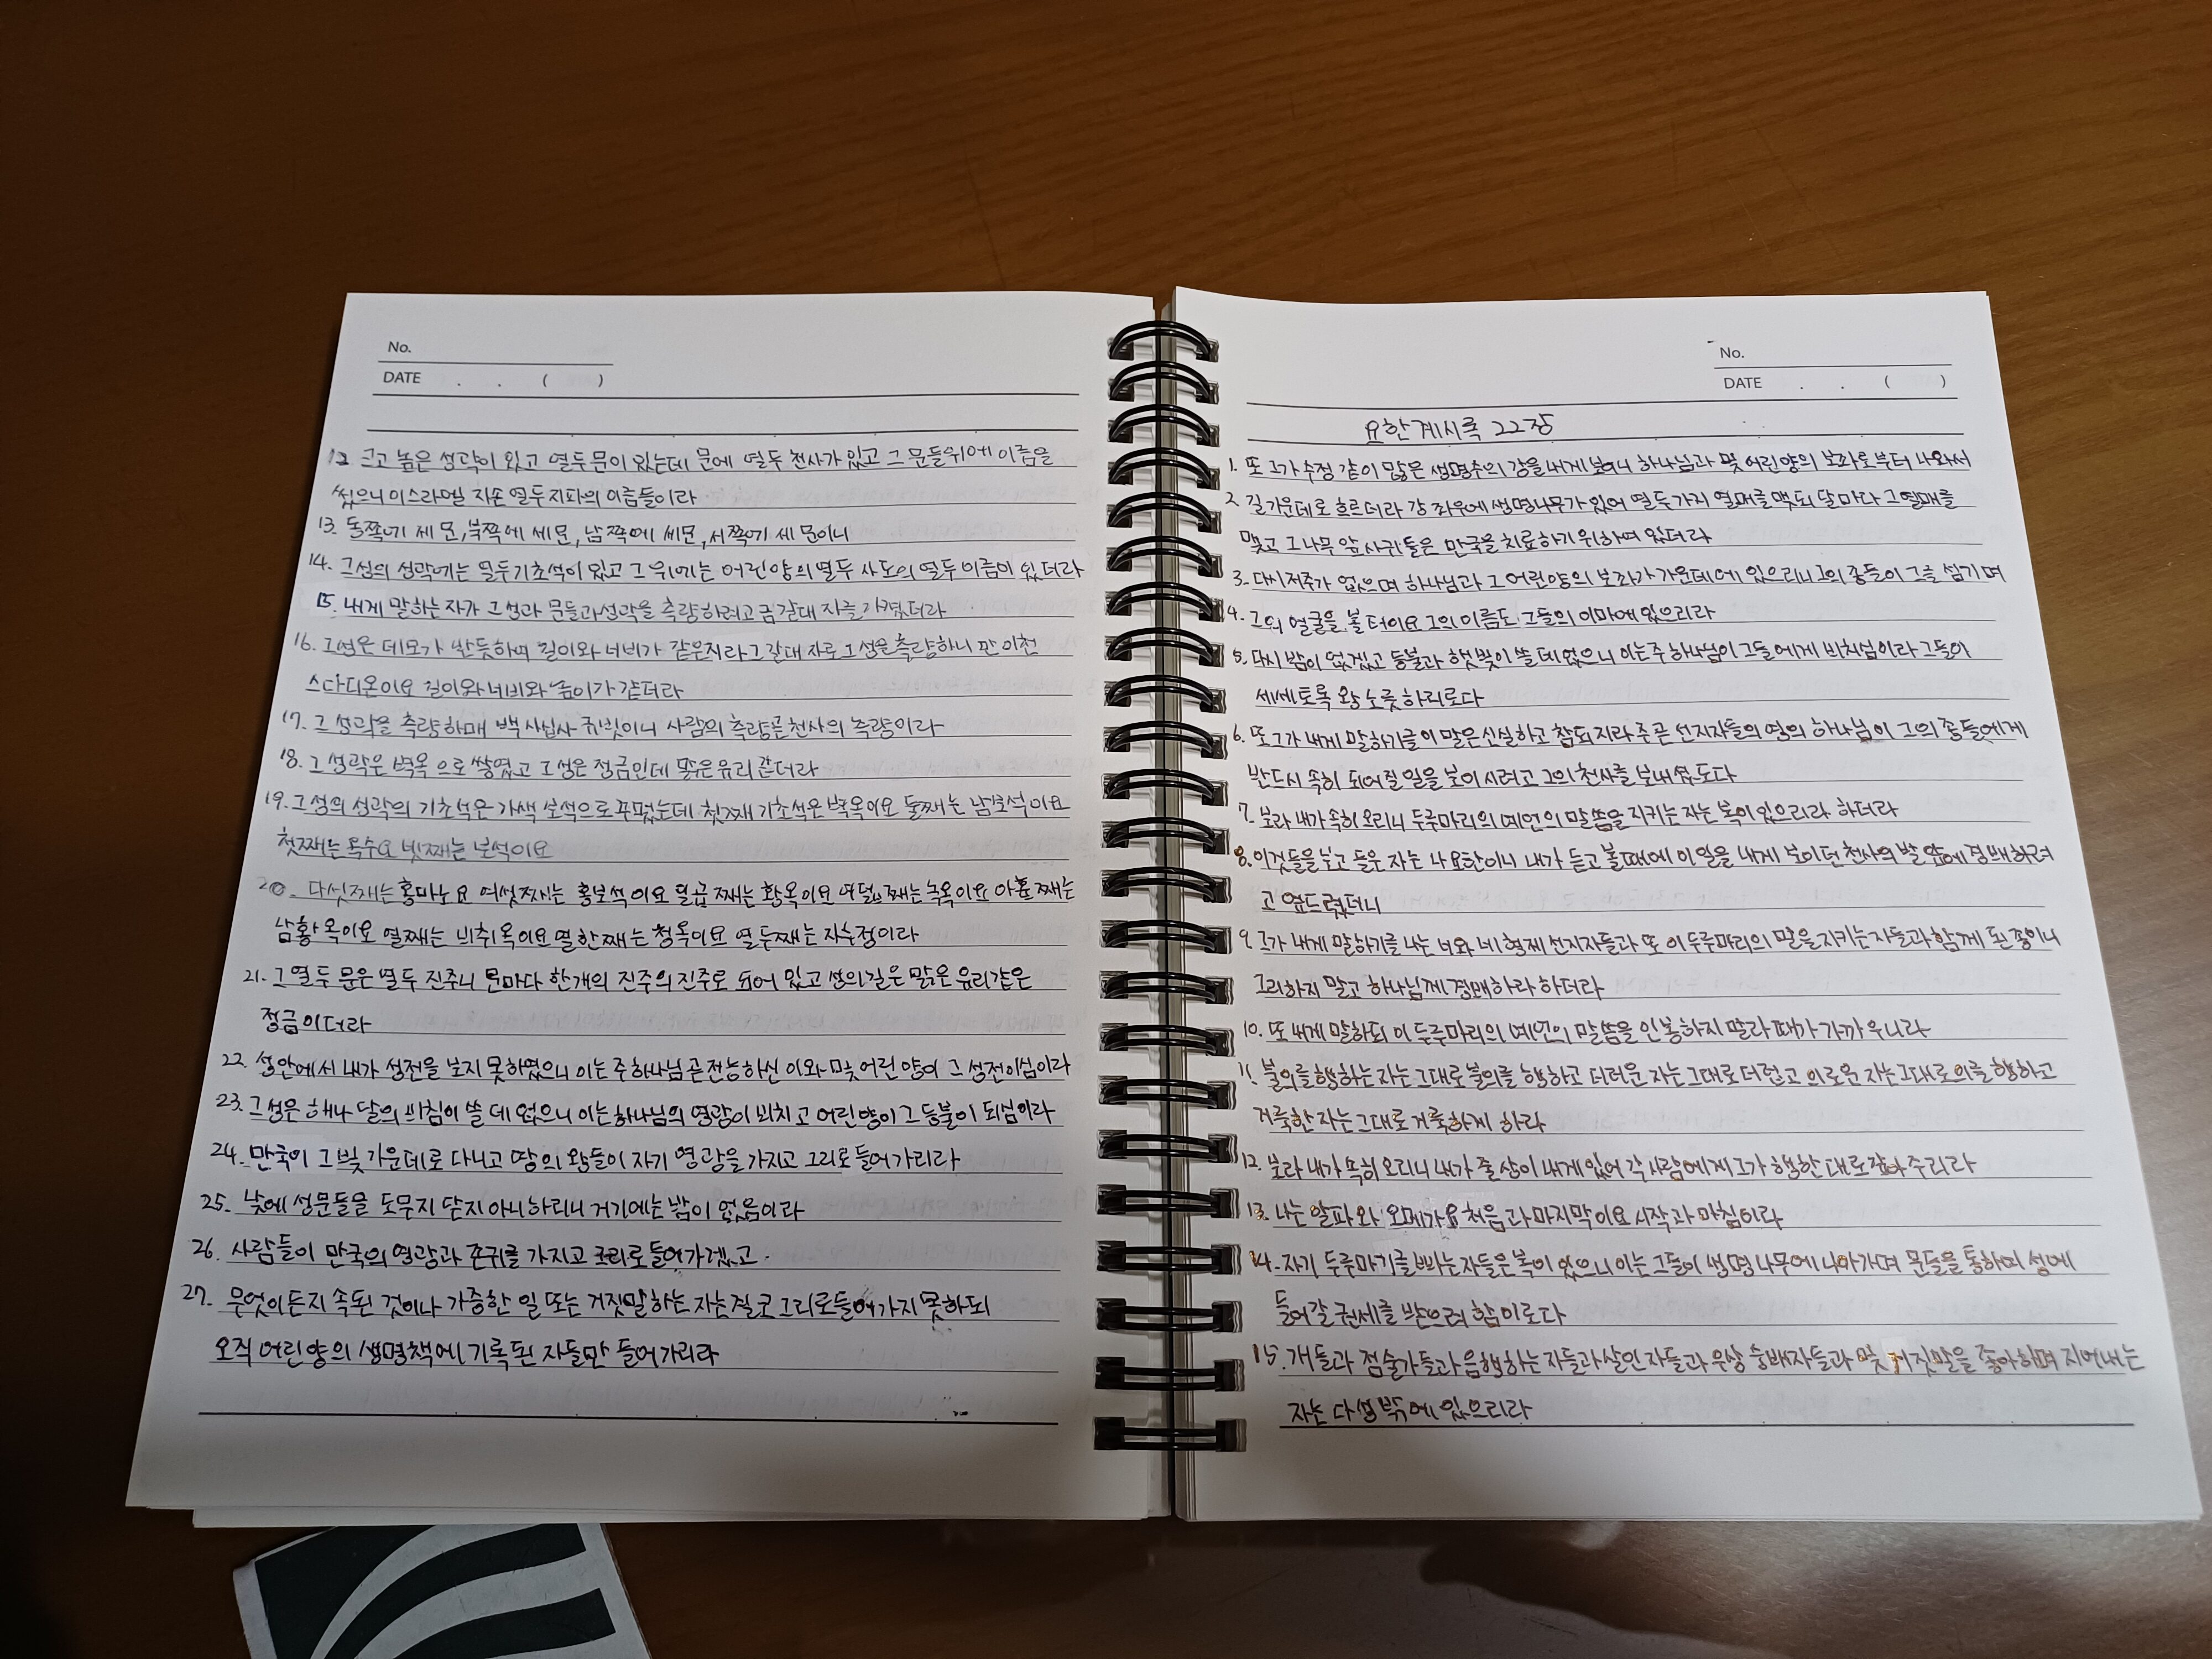 No.
DATE . . ( )
12. 크고 높은 성곽이 있고 열두 문이 있는데 문에 열두 천사가 있고 그 문들위에 이름을
썼으니 이스라엘 자손 열두지파의 이름들이라
13. 동쪽에 세 문, 북쪽에 세문, 남쪽에 세문, 서쪽에 세 문이니
14. 그성의 성곽에는 열두기초석이 있고 그 위에는 어린양의 열두 사도의 열두 이름이 있더라
15. 내게 말하는 자가 그 성과 문들과 성곽을 측량하려고 금갈대 자를 가졌더라
16. 그성은 네모가 반듯하여 길이와 너비가 같은지라 그 갈대 자로 그 성을 측량하니 만 이천
스다디온이요 길이와 너비와 높이가 같더라
17. 그 성곽을 측량하매 백 사십사 규빗이니 사람의 측량곧 천사의 측량이라
18. 그 성곽은 벽옥 으로 쌓였고 그 성은 정금인데 맑은 유리 같더라
19. 그 성의 성곽의 기초석은 각색 보석으로 꾸몄는데 첫째 기초석은 벽옥이요 둘째는 남보석이요
첫째는 옥수요 넷째는 보석이요
20. 다섯째는 홍마노요 여섯째는 홍보석이요 일곱째는 황옥이요 여덟째는 녹옥이요 아홉째는
남황 옥이요 열째는 비취옥이요 열한째는 청옥이요 열두째는 자수정이라
21. 그 열두 문은 열두 진주니 문마다 한개의 진주의 진주로 되어 있고 성의길은 맑은 유리같은
정금이더라
22. 성안에서 내가 성전을 보지 못하였으니 이는 주 하나님 곧 전능하신 이와 및 어린 양이 그 성전이심이라
23. 그성은 해나 달의 비침이 쓸 데 없으니 이는 하나님의 영광이 비치고 어린양이 그 등불이 되심이라
24. 만국이 그빛 가운데로 다니고 땅의 왕들이 자기 영광을 가지고 그리로 들어가리라
25. 낮에 성문들을 도무지 닫지 아니하리니 거기에는 밤이 없음이라
26. 사람들이 만국의 영광과 존귀를 가지고 그리로 들어가겠고
27. 무엇이든지 속된 것이나 가증한 일 또는 거짓말하는 자는 결코 그리로 들어가지 못하되
오직 어린양의 생명책에 기록된 자들만 들어가리라
No.
DATE . . ( )
요한계시록 22장
1. 또 그가 수정 같이 맑은 생명수의 강을 내게 보이니 하나님과 및 어린양의 보좌로부터 나와서
2. 길가운데로 흐르더라 강 좌우에 생명나무가 있어 열두가지 열매를 맺되 달마다 그열매를
맺고 그나무 잎사귀들은 만국을 치료하기 위하여 있더라
3. 다시 저주가 없으며 하나님과 그 어린양의 보좌가 가운데에 있으리니 그의 종들이 그를 섬기며
4. 그의 얼굴을 볼 터이요 그의 이름도 그들의 이마에 있으리라
5. 다시 밤이 없겠고 등불과 햇빛이 쓸 데 없으니 이는 주 하나님이 그들에게 비치심이라 그들이
세세토록 왕 노릇하리로다
6. 또 그가 내게 말하기를 이 말은 신실하고 참된지라 주 곧 선지자들의 영의 하나님이 그의 종들에게
반드시 속히 되어질 일을 보이시려고 그의 천사를 보내셨도다
7. 보라 내가 속히 오리니 두루마리의 예언의 말씀을 지키는 자는 복이 있으리라 하더라
8. 이것들을 보고 들은 자는 나 요한이니 내가 듣고 볼때에 이 일을 내게 보이던 천사의 발 앞에 경배하려
고 엎드렸더니
9. 그가 내게 말하기를 나는 너와 네 형제 선지자들과 또 이 두루마리의 말을 지키는 자들과 함께 된 종이니
그리하지 말고 하나님께 경배하라 하더라
10. 또 내게 말하되 이 두루마리의 예언의 말씀을 인봉하지 말라 때가 가까우니라
11. 불의를 행하는 자는 그대로 불의를 행하고 더러운 자는 그대로 더럽고 의로운 자는 그대로 의를 행하고
거룩한 자는 그대로 거룩하게 하라
12. 보라 내가 속히 오리니 내가 줄 상이 내게 있어 각 사람에게 그가 행한 대로 갚아 주리라
13. 나는 알파와 오메가요 처음과 마지막이요 시작과 마침이라
14. 자기 두루마기를 빠는 자들은 복이 있으니 이는 그들이 생명 나무에 나아가며 문들을 통하여 성에
들어갈 권세를 받으려 함이로다
15. 개들과 점술가들과 음행하는 자들과 살인 자들과 우상 숭배자들과 및 거짓말을 좋아하며 지어내는
자는 다 성 밖에 있으리라